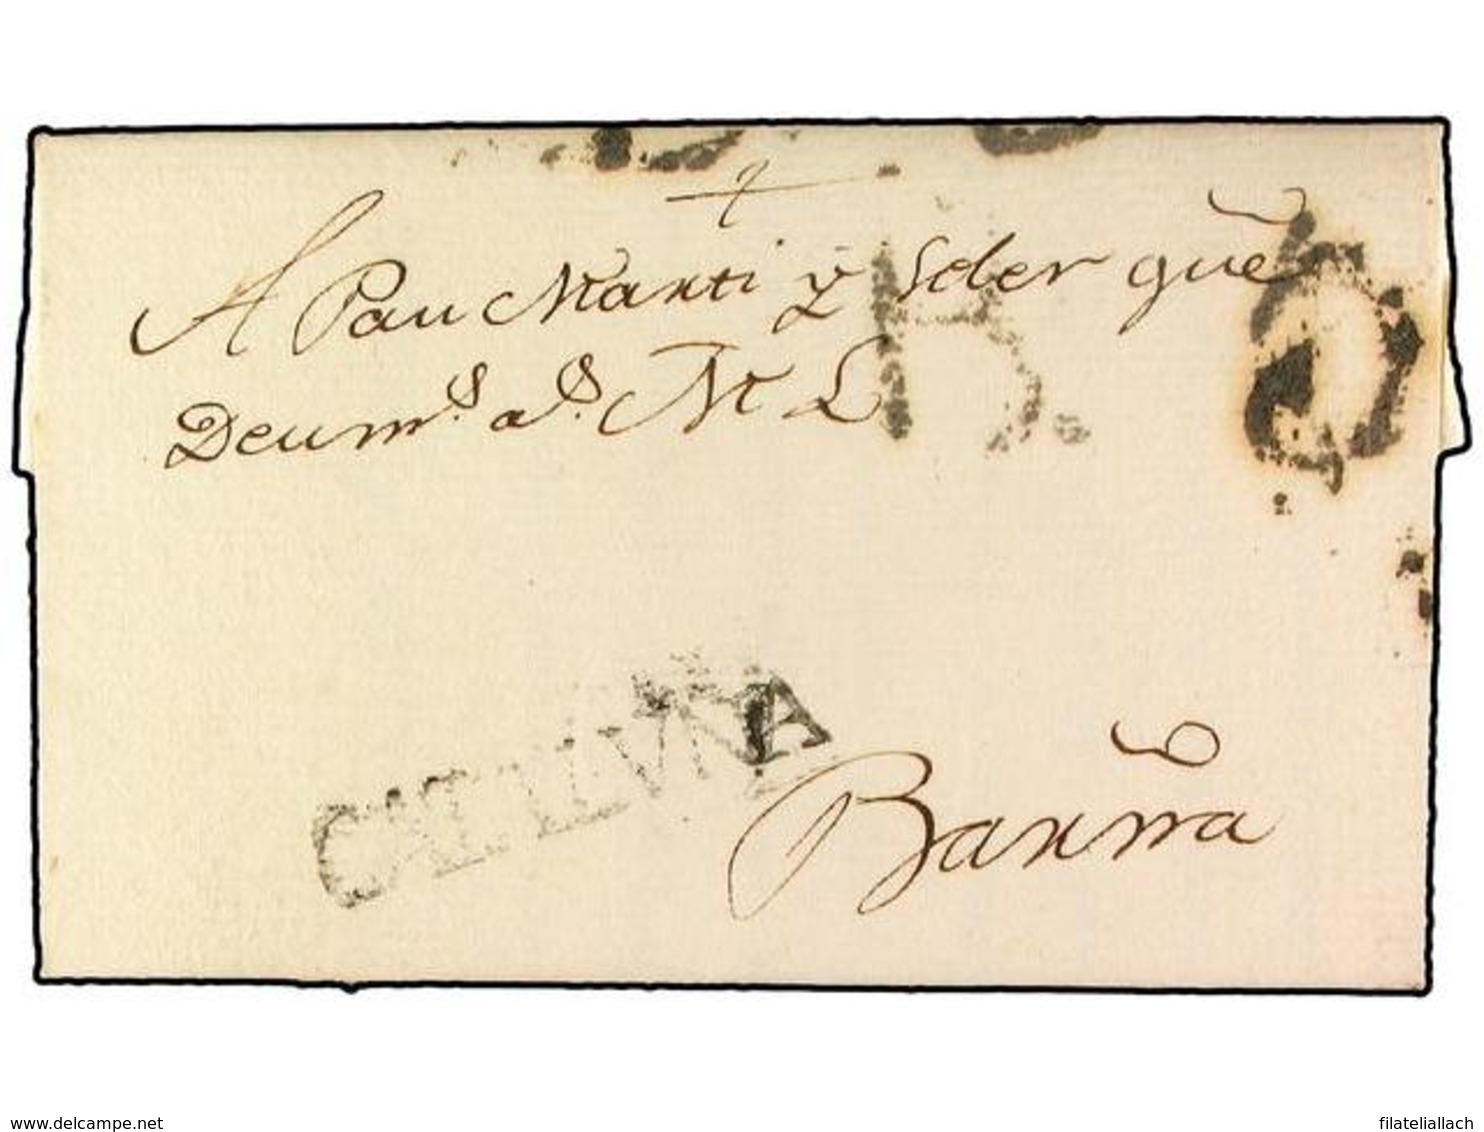 A Pau Marti y Soler que
Deu m.s a.s M L
CATALVÑA
Barña
delcampe.net
filateliallach